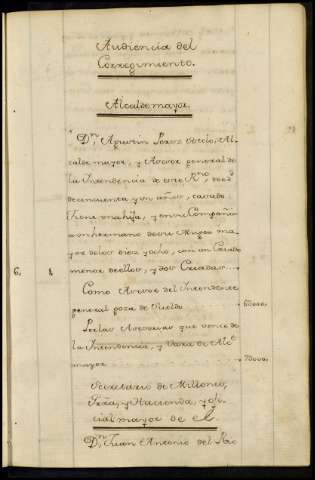 Audiencia del
Corregimiento.
Alcalde mayor.
Dn. Agustin Perez Al-
calde mayor, y Asesor general de
la Intendencia de este Rno, de ed.
de cinquenta y un años, casado
tiene una hija, y en su Compañia
a un hermano de su Muger ma-
yor de los diez y ocho, con un Criado
menor de ellos, y dos Criadas
6. 2
Como Asesor del Intendente
general goza de Sueldo 6000
Por las Asesorias que vence de
la Intendencia, y Vara de Alce.
mayor 7000
Secretario de Millones,
y Hacienda, y ofi-
cial mayor de el
Dn. Juan Antonio del Rio